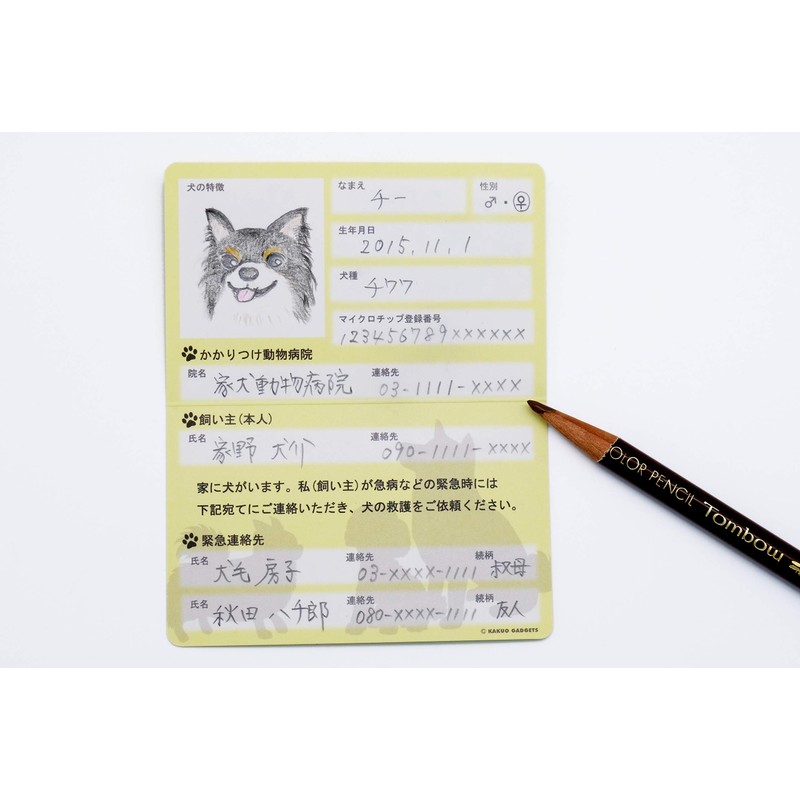 犬の特徴
なまえ チー
性別 ♂・♀
生年月日 2015.11.1
犬種 チワワ
マイクロチップ登録番号
123456789××××××
かかりつけ動物病院
院名 家犬動物病院 連絡先 03-1111-××××
飼い主(本人)
氏名 家野 犬介 連絡先 090-1111-××××
家に犬がいます。私(飼い主)が急病などの緊急時には
下記宛てにご連絡いただき、犬の救護をご依頼ください。
緊急連絡先
氏名 犬毛 房子 連絡先 03-××××-1111 続柄 叔母
氏名 秋田 八千郎 連絡先 080-××××-1111 続柄 友人
© KAKUO GADGETS
COLOR PENCIL Tombow